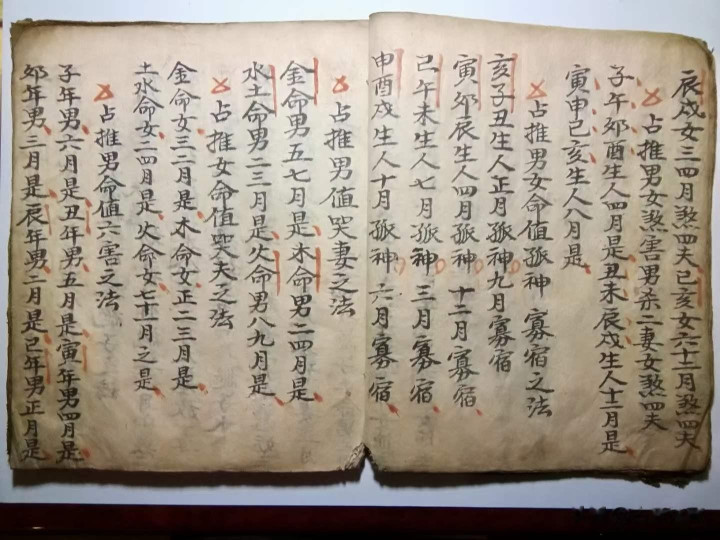 辰戌女三四月煞四夫己亥女六十二月煞四夫
占推男女煞害男杀二妻女煞四夫
子午郊酉生人四月是丑未辰戌生人十二月是
寅申己亥生人八月是
占推男女命值孤神寡宿之法
亥子丑生人正月孤神九月寡宿
寅郊辰生人四月孤神十二月寡宿
己午未生人七月孤神三月寡宿
申酉戌生人十月孤神六月寡宿
占推男值哭妻之法
金命男五七月是木命男二四月是
水土命男二三月是火命男八九月是
占推女命值哭夫之法
金命女三二月是木命女正二三月是
土水命女二四月是火命女七十一月之是
占推男命值六害之法
子年男六月是丑年男五月是寅年男四月是
郊年男三月是辰年男二月是己年男正月是